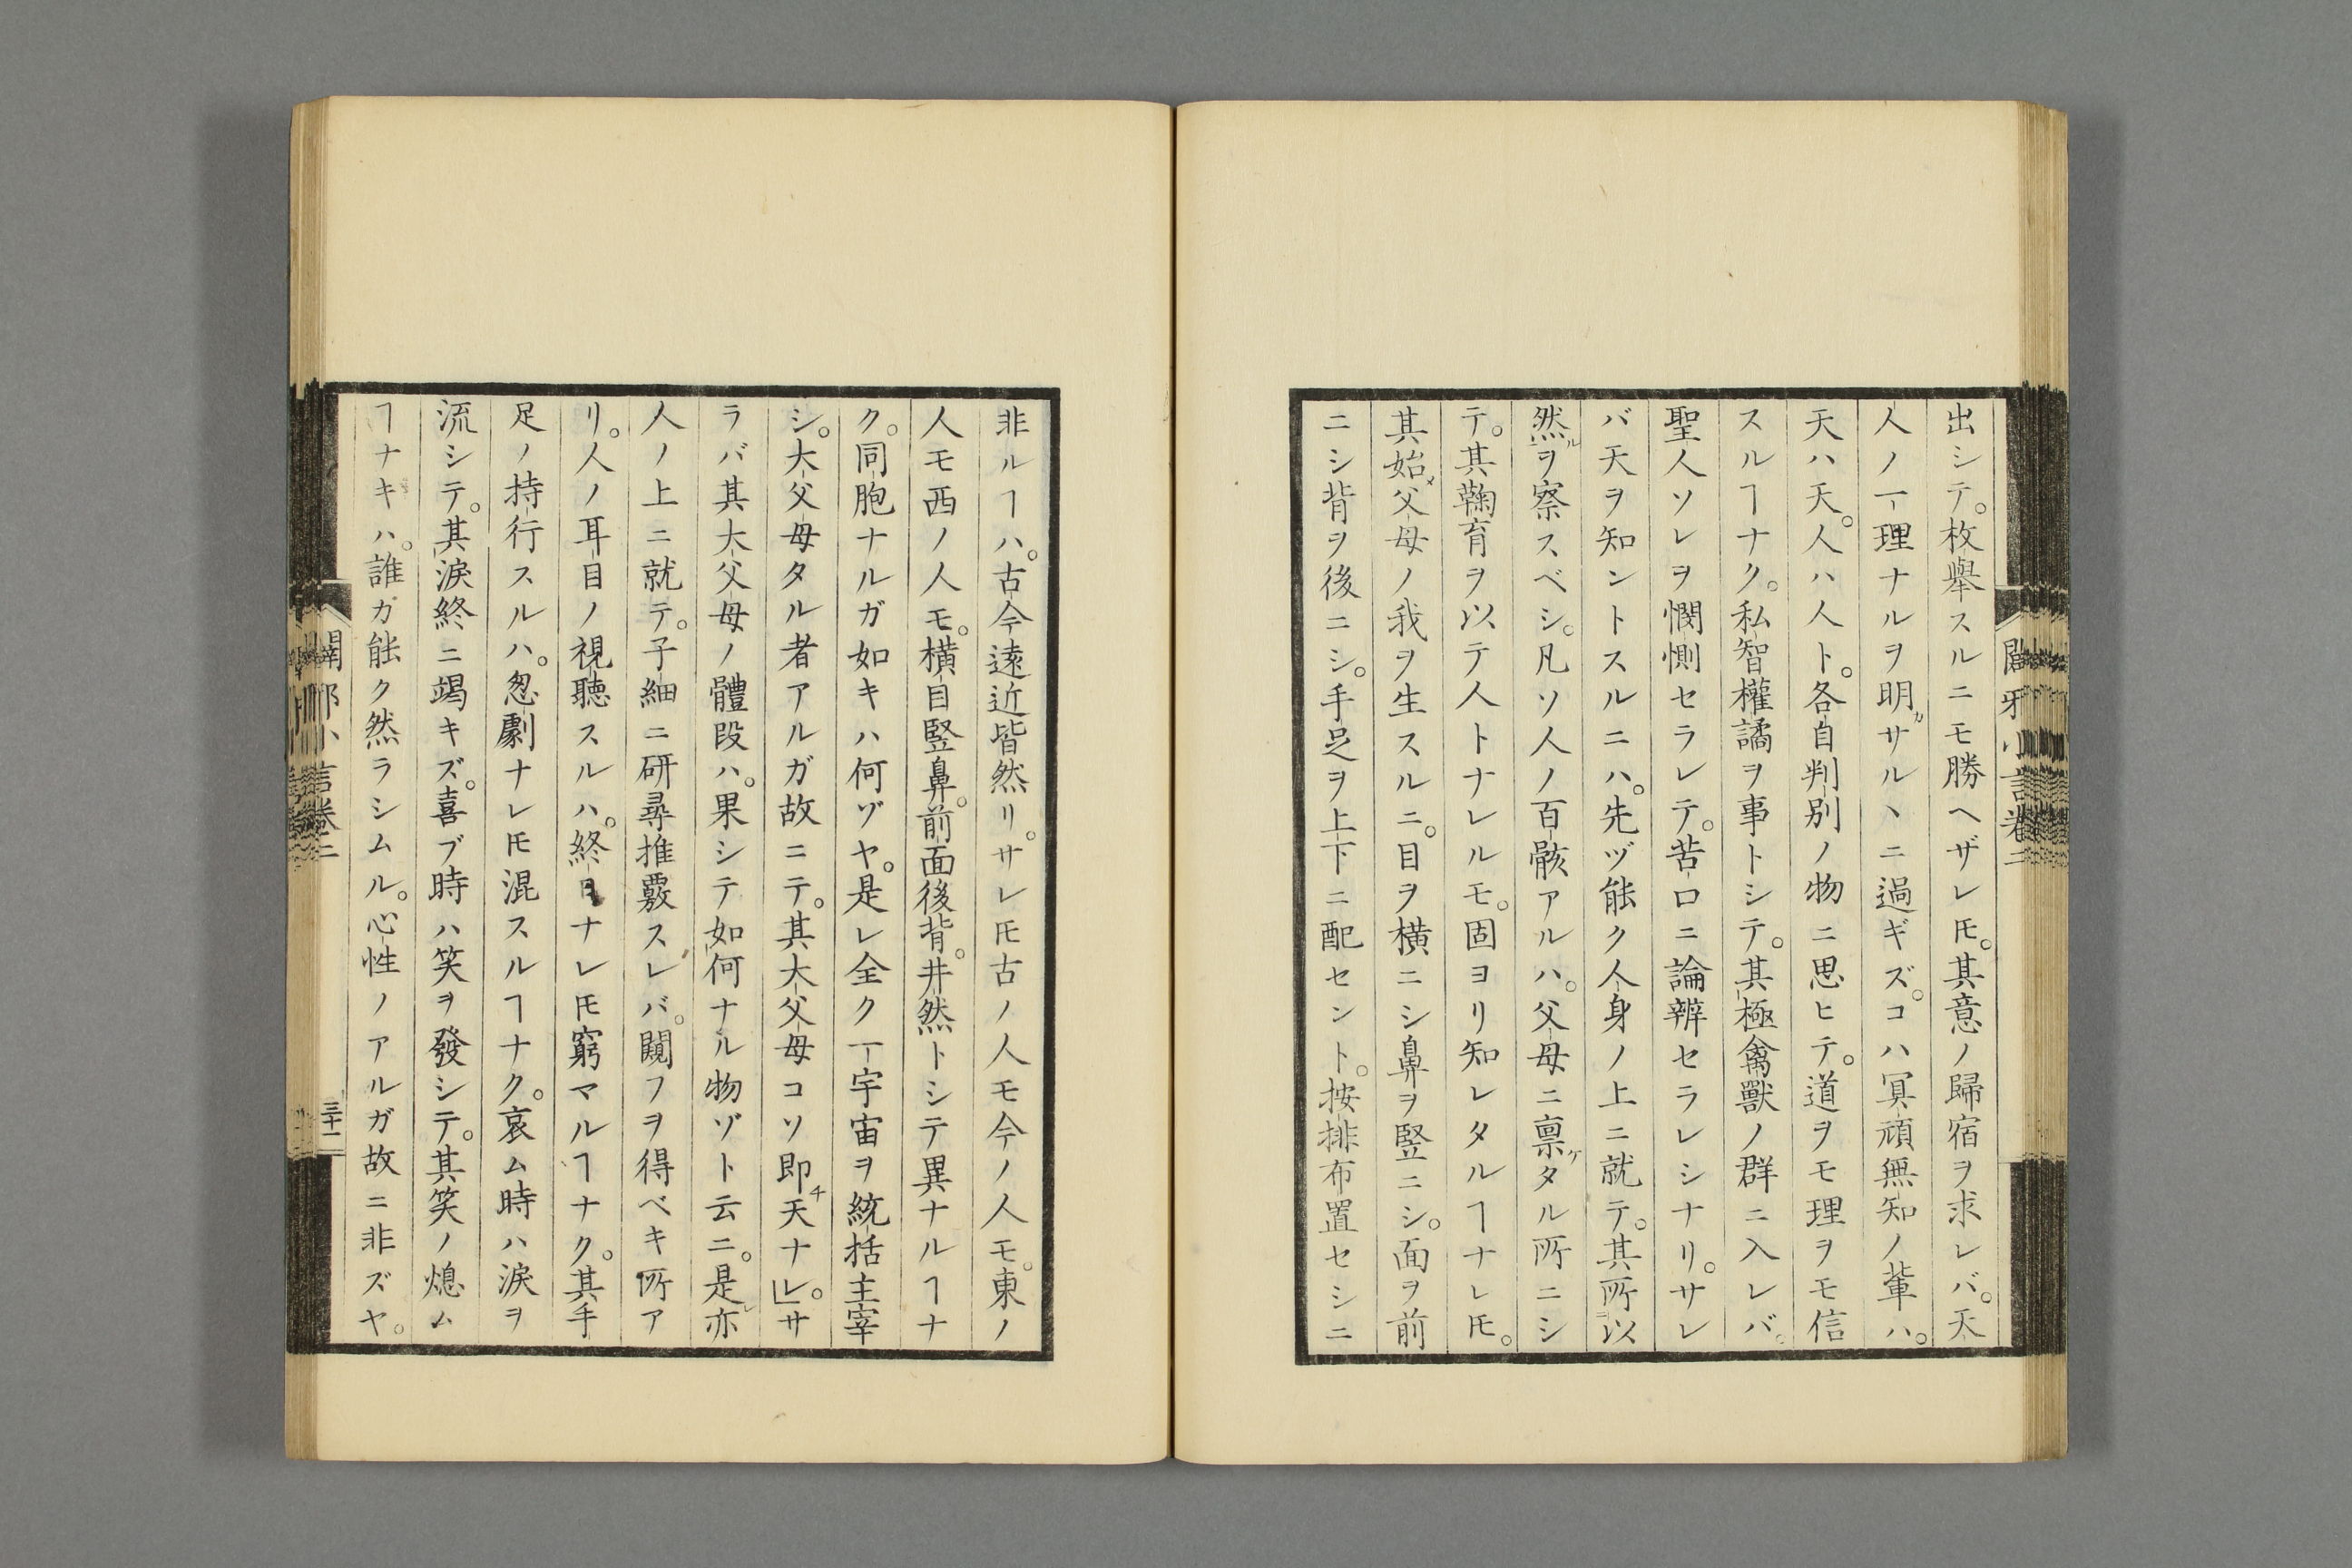 出シテ。枚舉スルニモ勝ヘザレ𪜈。其意ノ歸宿ヲ求レバ。天
人ノ一理ナルヲ明カサルヽニ過ギズ。コハ冥頑無知ノ輩ハ。
天ハ天。人ハ人ト。各自判別ノ物ニ思ヒテ。道ヲモ理ヲモ信
スルヿナク。私智權譎ヲ事トシテ。其極禽獸ノ群ニ入レバ。
聖人ソレヲ憫惻セラレテ。苦口ニ論辨セラレシナリ。サレ
バ天ヲ知ントスルニハ。先ヅ能ク人身ノ上ニ就テ。其所以
然ルヲ察スベシ。凡ソ人ノ百骸アルハ。父母ニ禀ケタル所ニシ
テ。其鞠育ヲ以テ人トナレルモ。固ヨリ知レタルヿナレ𪜈。
其始メ父母ノ我ヲ生スルニ。目ヲ横ニシ鼻ヲ竪ニシ。面ヲ前
ニシ背ヲ後ニシ。手足ヲ上下ニ配セント。按排布置セシニ
非ルヿハ。古今遠近皆然リ。サレ𪜈古ノ人モ今ノ人モ。東ノ
人モ西ノ人モ。横目竪鼻。前面後背。井然トシテ異ナルヿナ
ク。同胞ナルガ如キハ何ヅヤ。是レ全ク一宇宙ヲ統括主宰
シ。大父母タル者アルガ故ニテ。其大父母コソ即チ天ナレ」。サ
ラバ其大父母ノ體段ハ。果シテ如何ナル物ゾト云ニ。是レ亦
人ノ上ニ就テ。子細ニ研尋推覈スレバ。闚フヲ得ベキ所ア
リ。人ノ耳目ノ視聽スルハ。終日ナレ𪜈窮マルヿナク。其手
足ノ持行スルハ。怱劇ナレ𪜈混スルヿナク。哀ム時ハ淚ヲ
流シテ。其淚終ニ竭キズ。喜ブ時ハ笑ヲ發シテ。其笑ノ熄ム
ヿナキハ。誰カ能ク然ラシムル。心性ノアルガ故ニ非ズヤ。
闢邪小言卷二
三十二